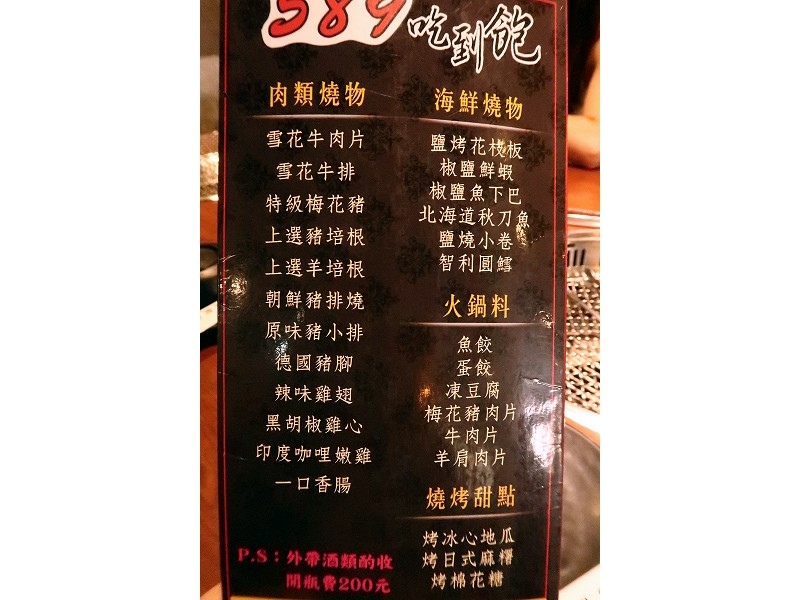 589吃到飽
肉類燒物
雪花牛肉片
雪花牛排
特級梅花豬
上選豬培根
上選羊培根
朝鮮豬排燒
原味豬小排
德國豬腳
辣味雞翅
黑胡椒雞心
印度咖哩嫩雞
一口香腸
P.S：外帶酒類酌收
開瓶費200元
海鮮燒物
鹽烤花枝板
椒鹽鮮蝦
椒鹽魚下巴
北海道秋刀魚
鹽燒小卷
智利圓鱈
火鍋料
魚餃
蛋餃
凍豆腐
梅花豬肉片
牛肉片
羊肩肉片
燒烤甜點
烤冰心地瓜
烤日式麻糬
烤棉花糖